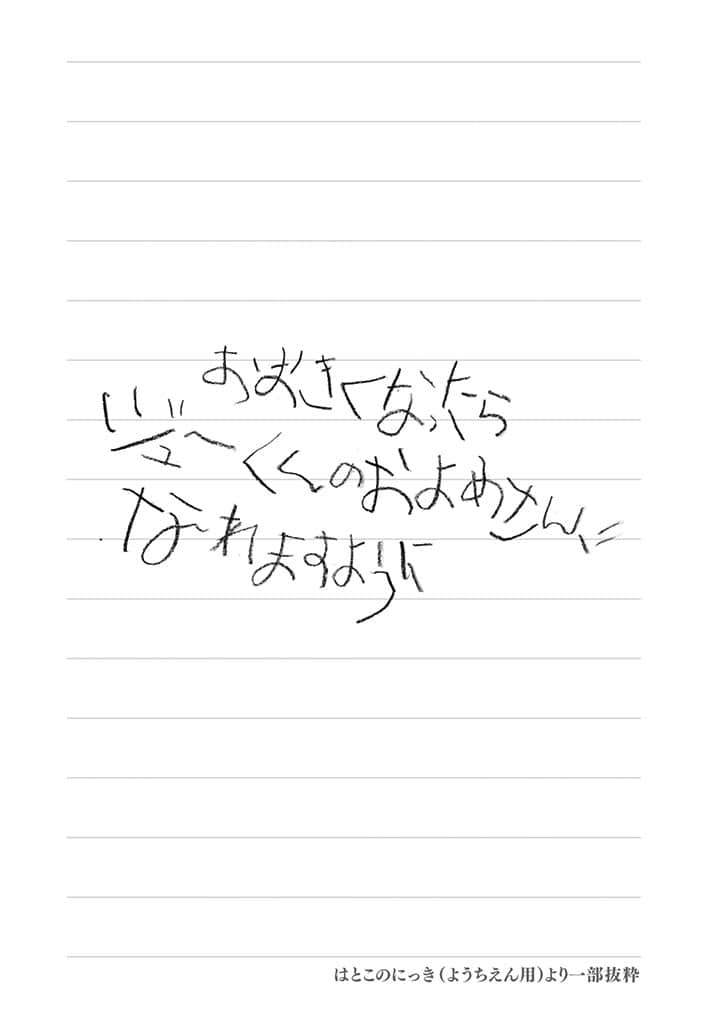 おおきくなったら
いジュ〜くんのおよめさんに
なれますように
はとこのにっき(ようちえん用)より一部抜粋